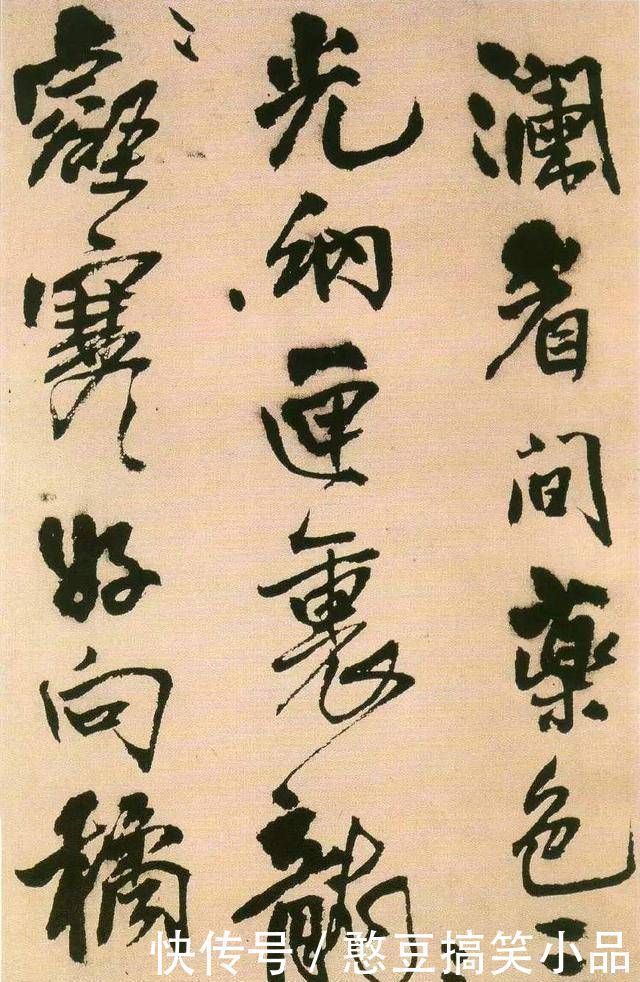 瀾看間藥色
光納匣裏龍
寒好向橘
快传号 / 憨豆搞笑小品